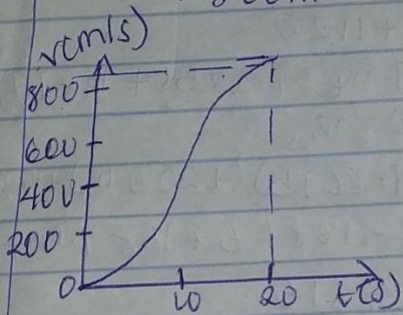 v(m/s)
800
600
400
200
0
10 20 t(s)